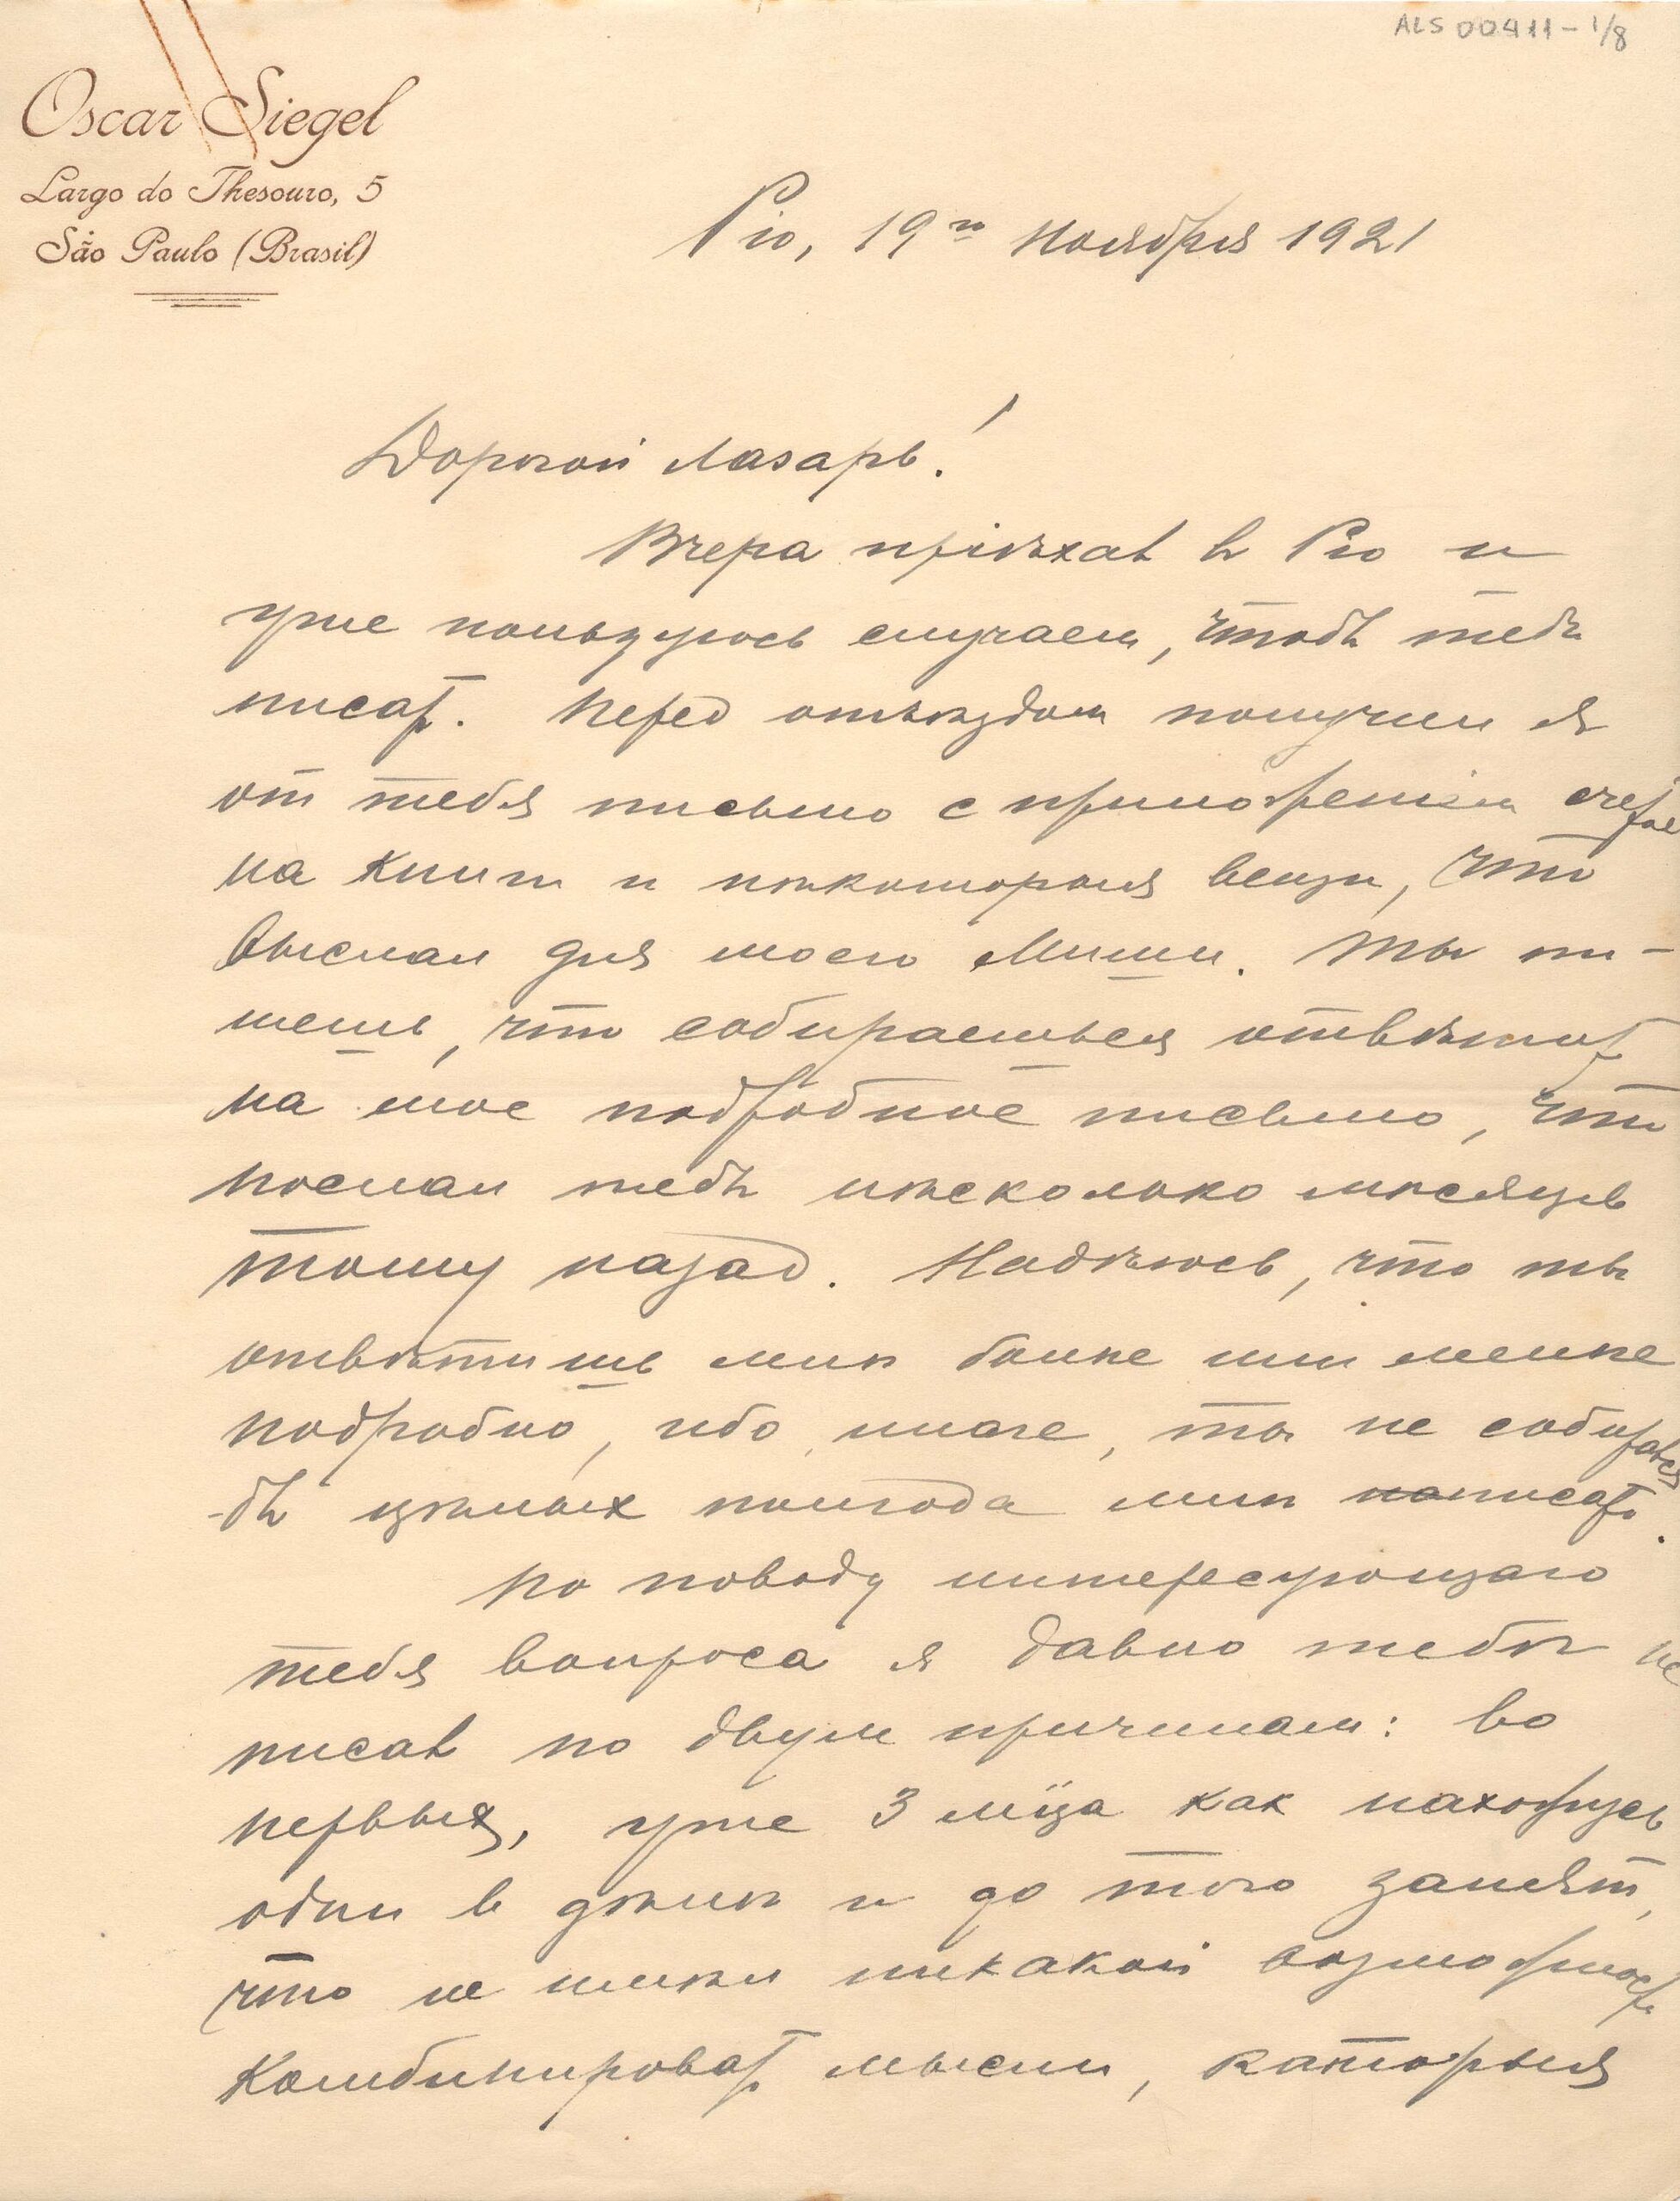 ALS 00411 - 1/8
Oscar Siegel
Largo do Thesouro, 5
São Paulo (Brasil)
Рio, 19го Ноября 1921
Дорогой Лазарь!
Вчера пріѣхал в Рio и
уже пользуюсь случаем, чтобы тебѣ
писать. Перед отъѣздом получил я
от тебя письмо с приложеніем
на книги и нѣкоторыя вещи, что
выслал для моего Миши. Ты пи-
шешь, что собираешься отвѣтить
на мое подробное письмо, что
послал тебѣ нѣсколько мѣсяцев
тому назад. Надѣюсь, что ты
отвѣтишь мнѣ болѣе или менѣе
подробно, ибо, иначе, ты не собирался
-бы цѣлых полгода мнѣ писать.
По поводу интересующаго
тебя вопроса я давно тебѣ не
писал по двум причинам: во
первых, уже 3 мѣца как нахожусь
один в дѣлѣ и до того занят,
что не имѣл никакой возможности
комбинировать мысли, которыя